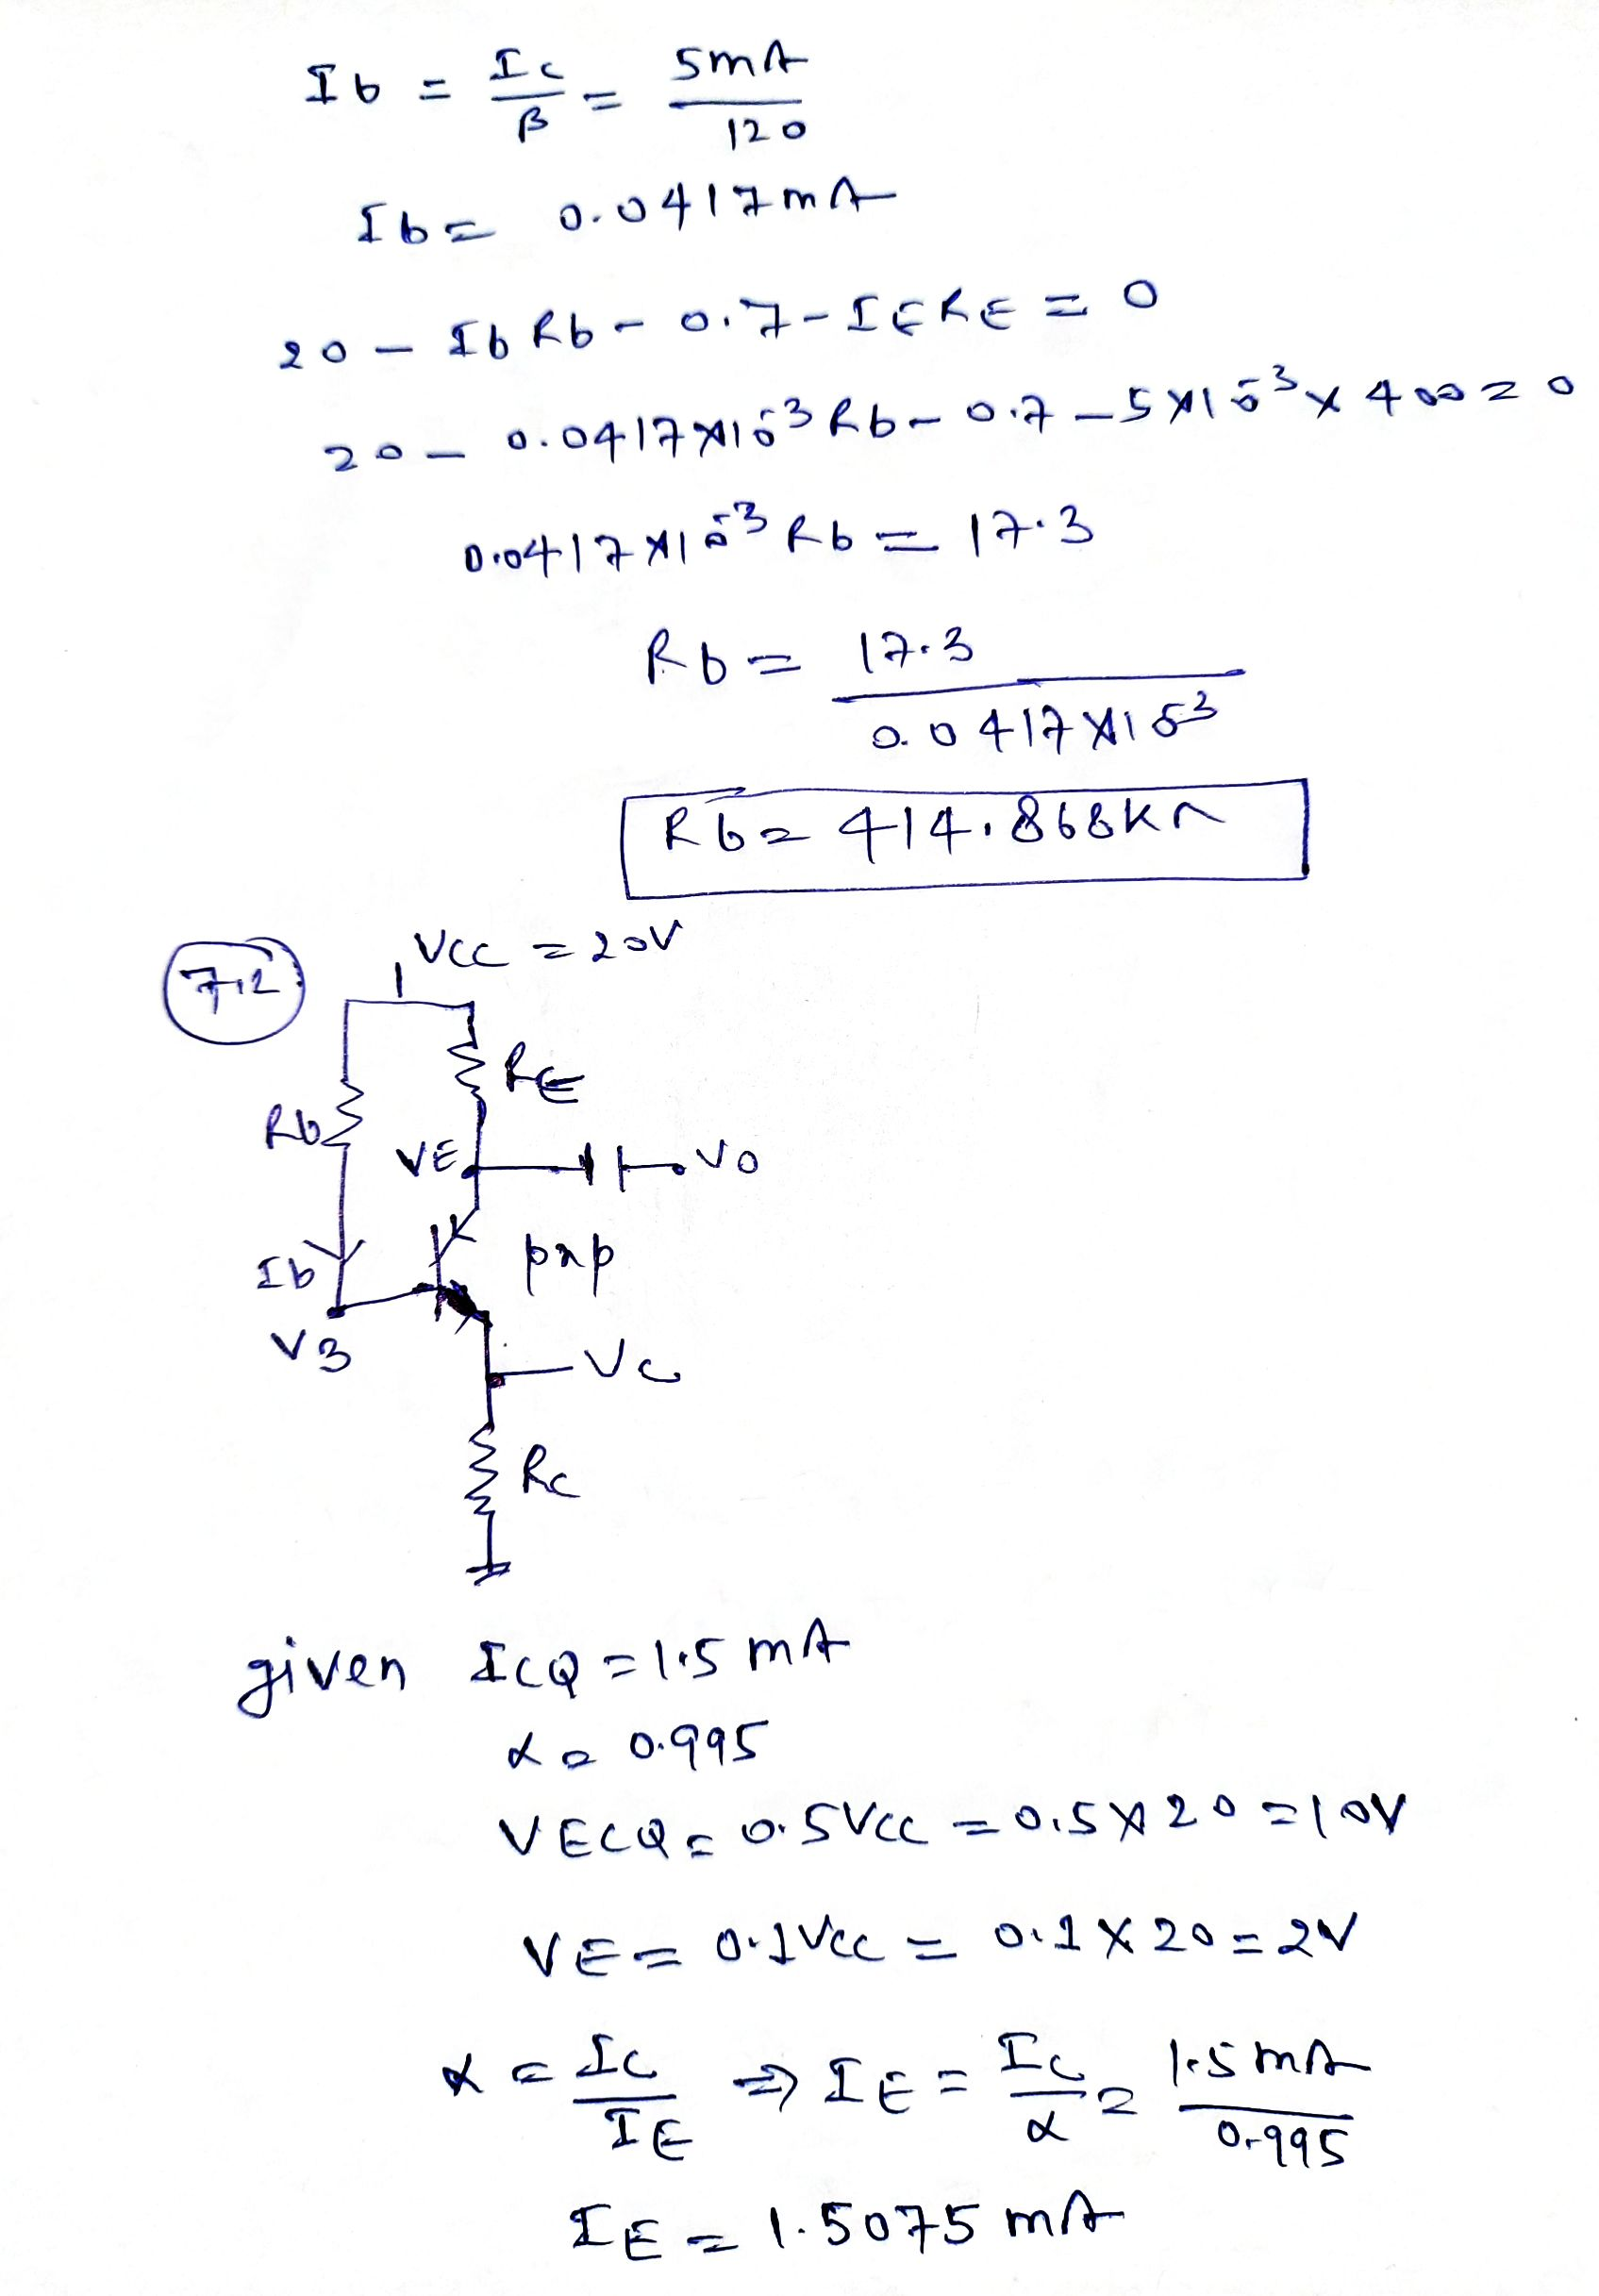 Ib = Ic/β = 5mA/120
Ib = 0.0417mA
20 - IbRb - 0.7 - IERE = 0
20 - 0.0417×10^-3 Rb - 0.7 - 5×10^-3 × 400 = 0
0.0417×10^-3 Rb = 17.3
Rb = 17.3/0.0417×10^-3
Rb = 414.868KΩ
7.2
VCC = 20V
RE
Rb
VE
VO
Ib
pnp
VB
VC
RC
given ICQ = 1.5 mA
α = 0.995
VECQ = 0.5VCC = 0.5×20 = 10V
VE = 0.1VCC = 0.1×20 = 2V
α = IC/IE ⇒ IE = IC/α = 1.5mA/0.995
IE = 1.5075 mA